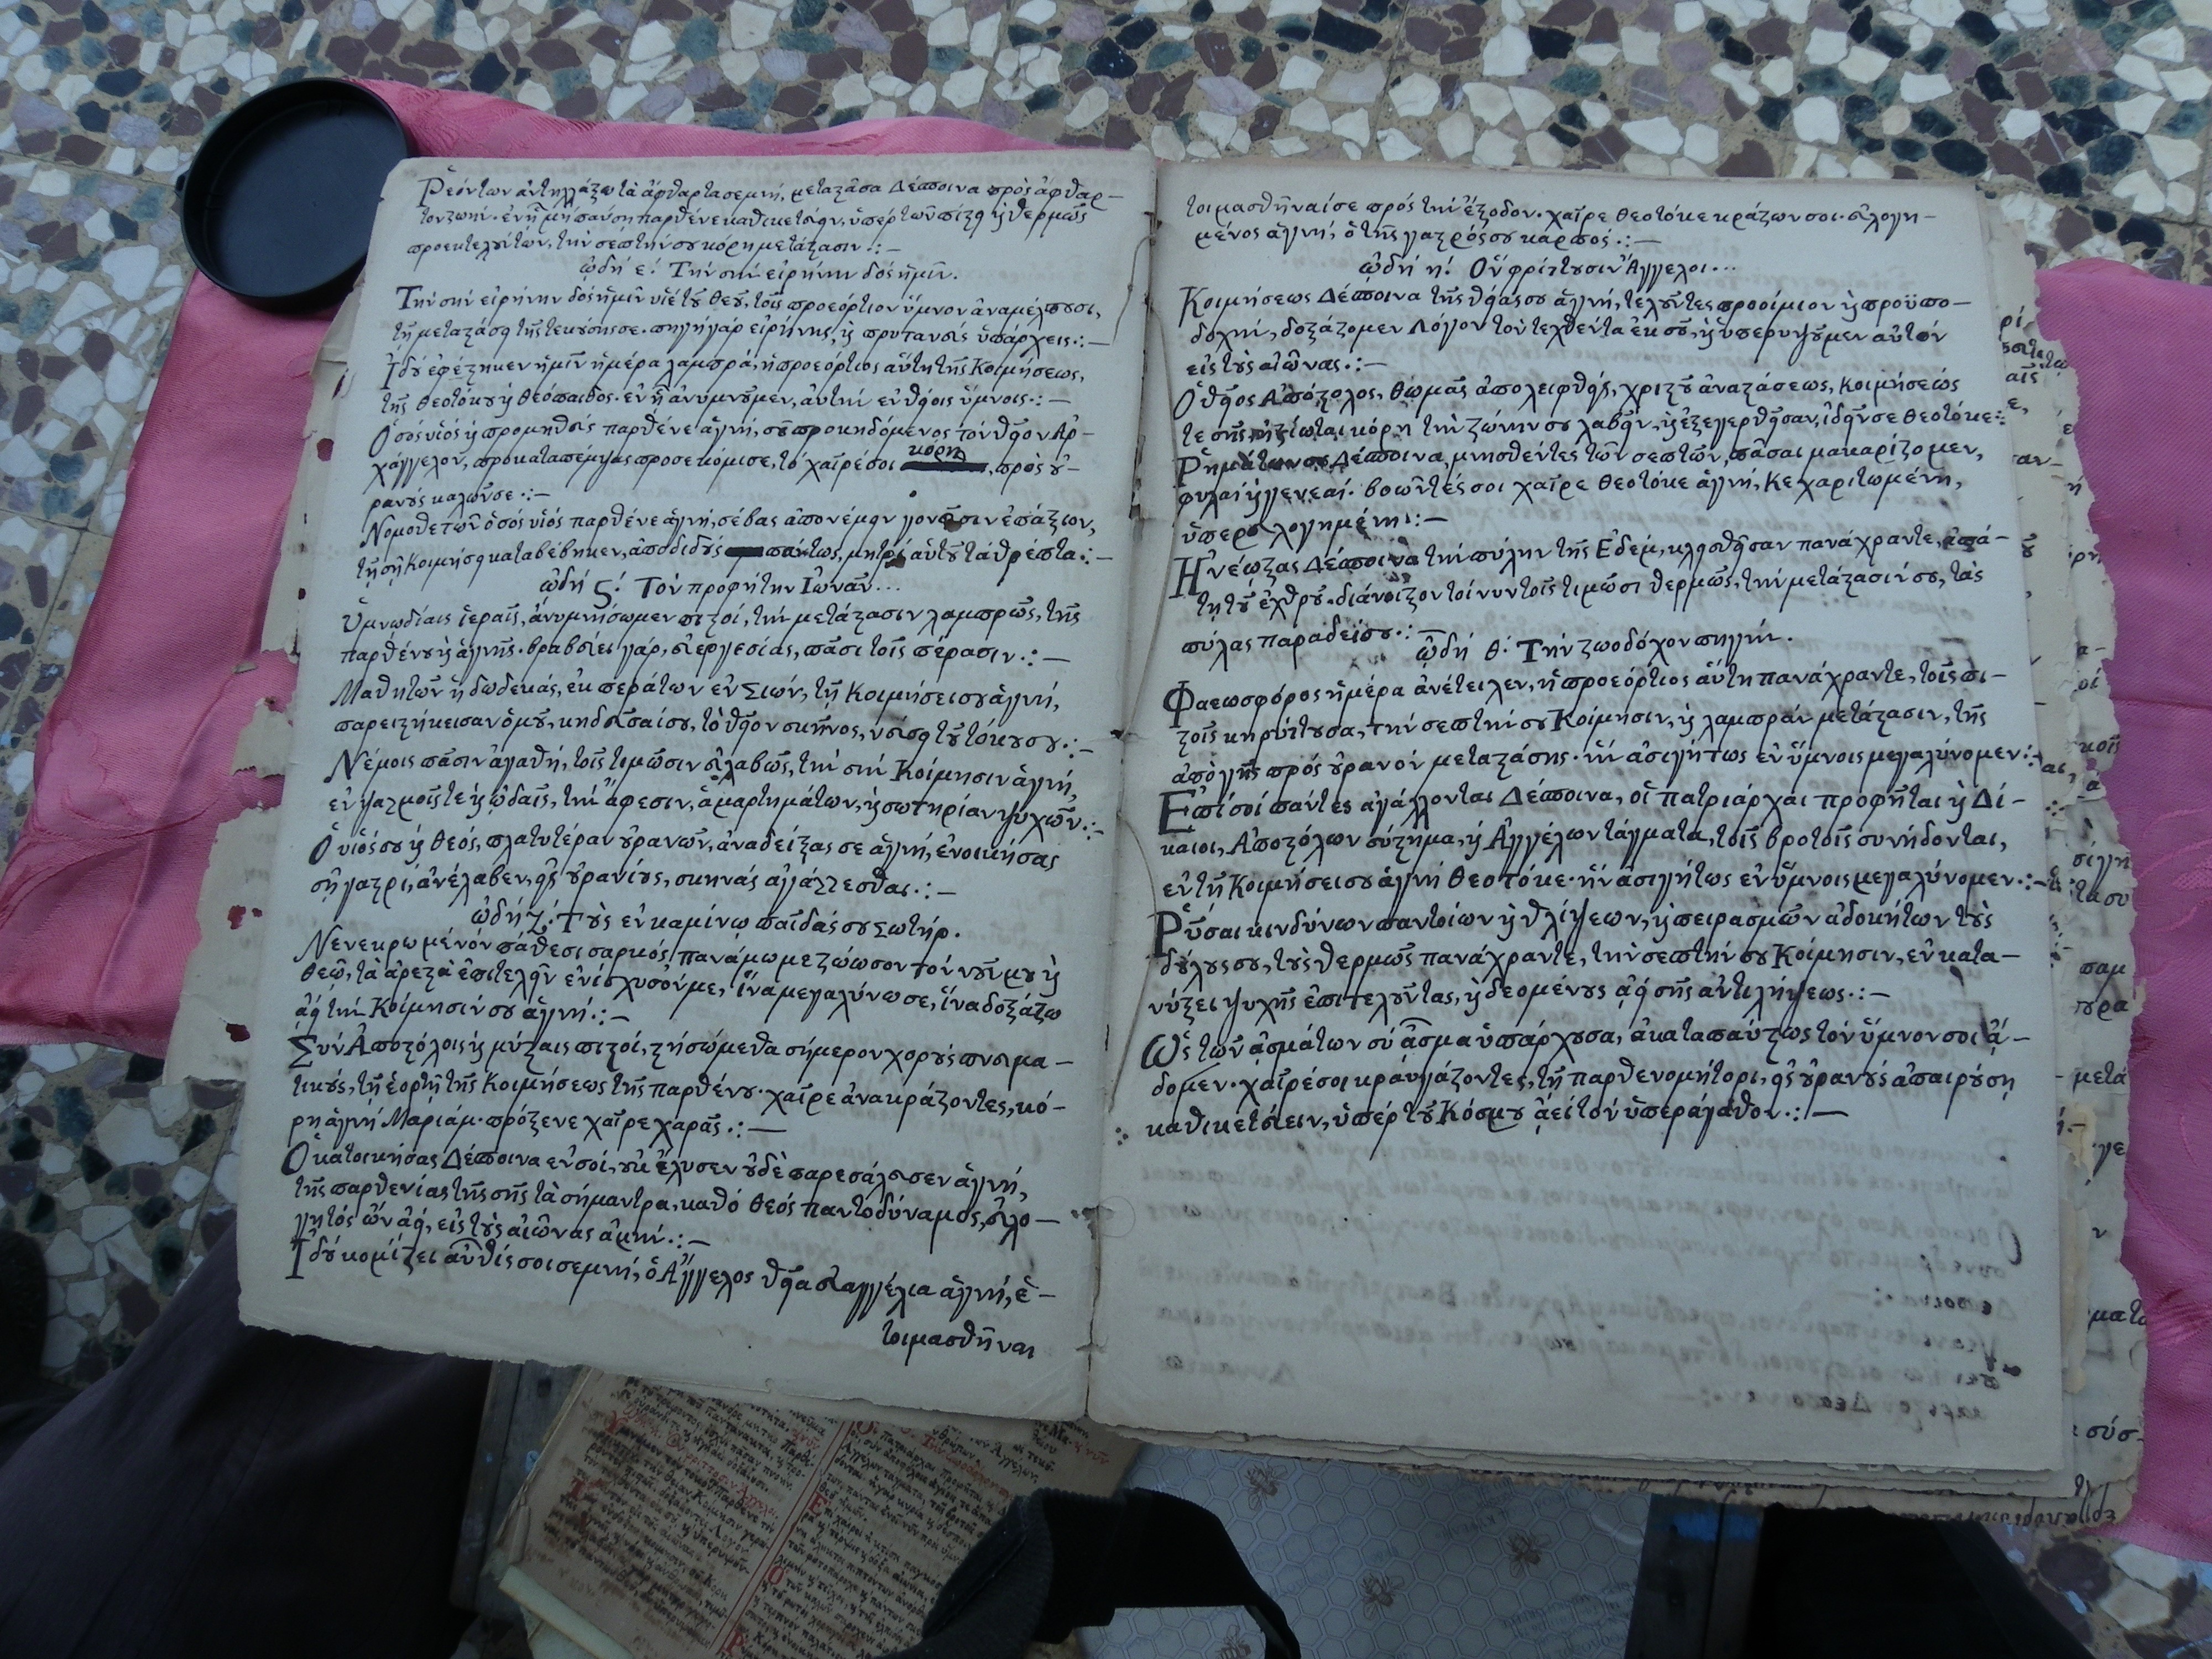 Ῥεόντων ἀντηλλάξω τὰ ἄφθαρτα σεμνή, μεταστᾶσα Δέσποινα πρὸς ἄφθαρ-
τον ζωήν· ἐν ᾗ μὴ παύσῃ παρθένε καθικετεύειν, ὑπὲρ τῶν πίστει καὶ θερμῶς
προεκτελούντων, τὴν σεπτήν σου κόρη μετάστασιν:-
ᾠδή ε΄. Τὴν σὴν εἰρήνην δὸς ἡμῖν.
Τὴν σὴν εἰρήνην δὸς ἡμῖν υἱὲ τοῦ θεοῦ, τοῖς προεόρτιον ὕμνον ἀναμέλπουσι,
τῇ μεταστάσει τῆς τεκούσης σε· πηγὴ γὰρ εἰρήνης, καὶ πρυτανεὺς ὑπάρχεις:-
Ἰδοὺ ἐφέστηκεν ἡμῖν ἡμέρα λαμπρά, ἡ προεόρτιος αὕτη τῆς Κοιμήσεως,
τῆς Θεοτόκου καὶ Θεόπαιδος· ἐν ᾗ ἀνυμνοῦμεν, αὐτὴν ἐν θείοις ὕμνοις:-
Ὁ σὸς υἱὸς καὶ προμηθεὺς παρθένε ἁγνή, σοῦ προκηδόμενος τὸν θεῖον Ἀρ-
χάγγελον, προκαταπέμψας προσεκόμισε, τὸ χαῖρέ σοι κόρη, πρὸς οὐ-
ρανοὺς καλῶν σε:-
Νομοθετῶν ὁ σὸς υἱὸς παρθένε ἁγνή, σέβας ἀπονέμειν γονεῦσιν ἐπάξιον,
τῇ σῇ Κοιμήσει καταβέβηκεν, ἀποδιδοὺς πάντως, μητρὶ αὐτοῦ τὰ θρέπτα:-
ᾠδή ϛ΄. Τὸν προφήτην Ἰωνᾶν...
Ὑμνωδίαις ἱεραῖς, ἀνυμνήσωμεν πιστοί, τὴν μετάστασιν λαμπρῶς, τῆς
παρθένου καὶ ἁγνῆς· βραβεύει γάρ, εὐεργεσίας, πᾶσι τοῖς πέρασιν:-
Μαθητῶν ἡ δωδεκάς, ἐκ περάτων ἐν Σιών, τῇ Κοιμήσει σου ἁγνή,
παρειστήκεισαν ὁμοῦ, κηδεῦσαί σου, τὸ θεῖον σκῆνος, νεύσει τοῦ τόκου σου:-
Νέμοις πᾶσιν ἀγαθή, τοῖς τιμῶσιν εὐλαβῶς, τὴν σὴν Κοίμησιν ἁγνή,
ἐν ψαλμοῖς τε καὶ ᾠδαῖς, τὴν ἄφεσιν, ἁμαρτημάτων, καὶ σωτηρίαν ψυχῶν:-
Ὁ υἱός σου καὶ Θεός, πλατυτέραν οὐρανῶν, ἀναδείξας σε ἁγνή, ἐνοικήσας
σῇ γαστρί, ἀνέλαβεν, εἰς οὐρανίους, σκηνὰς ἀγάλλεσθαι:-
ᾠδή ζ΄. Τοὺς ἐν καμίνῳ παῖδάς σου Σωτήρ.
Νενεκρωμένον πάθεσι σαρκός, πανάμωμε ζώωσον τὸν νοῦν μου καὶ
Θεῷ, τὰ ἀρεστὰ ἐπιτελεῖν ἐνίσχυσόν με, ἵνα μεγαλύνω σε, ἵνα δοξάζω
ἀεὶ τὴν Κοίμησίν σου ἁγνή:-
Σὺν Ἀποστόλοις καὶ μύσταις πιστοί, στησώμεθα σήμερον χοροὺς πνευμα-
τικούς, τῇ ἑορτῇ τῆς Κοιμήσεως τῆς παρθένου· χαῖρε ἀνακράζοντες, κό-
ρη ἁγνὴ Μαριάμ· πρόξενε χαῖρε χαρᾶς:-
Ὁ κατοικήσας Δέσποινα ἐν σοί, οὐκ ἔλυσεν οὐδὲ παρεσάλευσεν ἁγνή,
τῆς παρθενίας τῆς σῆς τὰ σήμαντρα, καθὸ Θεὸς παντοδύναμος, εὐλο-
γητὸς ὢν ἀεί, εἰς τοὺς αἰῶνας ἀμήν:-
Ἰδοὺ κομίζει αὖθίς σοι σεμνή, ὁ Ἄγγελος θεῖα εὐαγγέλια ἁγνή, ἑ-
τοιμασθῆναι
τοιμασθῆναί σε πρὸς τὴν ἔξοδον· χαῖρε Θεοτόκε κράζων σοι· εὐλογη-
μένος ἁγνή, ὁ τῆς γαστρός σου καρπός:-
ᾠδή η΄. Ὃν φρίττουσιν Ἄγγελοι...
Κοιμήσεως Δέσποινα τῆς θείας σου ἁγνή, τελοῦντες προοίμιον καὶ προϋπο-
δοχήν, δοξάζομεν Λόγον τὸν τεχθέντα ἐκ σοῦ, καὶ ὑπερυψοῦμεν αὐτὸν
εἰς τοὺς αἰῶνας:-
Ὁ θεῖος Ἀπόστολος, Θωμᾶς ἀπολειφθείς, χριστοῦ ἀναστάσεως, Κοιμήσεώς
τε σῆς ἠξίωται κόρη τὴν ζώνην σου λαβεῖν, καὶ ἐξεγερθεῖσαν, ἰδεῖν σε Θεοτόκε:-
Ῥημάτων σου Δέσποινα, μνησθέντες τῶν σεπτῶν, πᾶσαι μακαρίζομεν,
φυλαὶ καὶ γενεαί· βοῶντές σοι χαῖρε Θεοτόκε ἁγνή, Κεχαριτωμένη,
ὑπερευλογημένη:-
Ἠνέωξας Δέσποινα τὴν πύλην τῆς Ἐδέμ, κλεισθεῖσαν πανάχραντε, ἀπά-
τῃ τοῦ ἐχθροῦ· διάνοιξον τοίνυν τοῖς τιμῶσι θερμῶς, τὴν μετάστασίν σου, τὰς
πύλας παραδείσου:-
ᾠδή θ΄. Τὴν ζωοδόχον πηγήν.
Φαεωσφόρος ἡμέρα ἀνέτειλεν, ἡ προεόρτιος αὕτη πανάχραντε, τοῖς πι-
στοῖς κηρύττουσα, τὴν σεπτήν σου Κοίμησιν, καὶ λαμπρὰν μετάστασιν, τῆς
ἀπὸ γῆς πρὸς οὐρανὸν μεταστάσης· ἣν ἀσιγήτως ἐν ὕμνοις μεγαλύνομεν:-
Ἐπὶ σοὶ πάντες ἀγάλλονται Δέσποινα, οἱ πατριάρχαι προφῆται καὶ Δί-
καιοι, Ἀποστόλων σύστημα, καὶ Ἀγγέλων τάγματα, τοῖς βροτοῖς συνήδονται,
ἐν τῇ Κοιμήσει σου ἁγνὴ Θεοτόκε· ἣν ἀσιγήτως ἐν ὕμνοις μεγαλύνομεν:-
Ῥῦσαι κινδύνων παντοίων καὶ θλίψεων, καὶ πειρασμῶν ἀδοκήτων τοὺς
δούλους σου, τοὺς θερμῶς πανάχραντε, τὴν σεπτήν σου Κοίμησιν, ἐν κατα-
νύξει ψυχῆς ἐπιτελοῦντας, καὶ δεομένους ἀεὶ σῆς ἀντιλήψεως:-
Ὡς τῶν ᾀσμάτων σὺ ᾆσμα ὑπάρχουσα, ἀκαταπαύστως τὸν ὕμνον σοι ᾄ-
δομεν· χαῖρέ σοι κραυγάζοντες, τῇ παρθενομήτορι, εἰς οὐρανοὺς ἀπαιρούσῃ
καθικετεύειν, ὑπὲρ τοῦ Κόσμου ἀεὶ τὸν ὑπεράγαθον:-